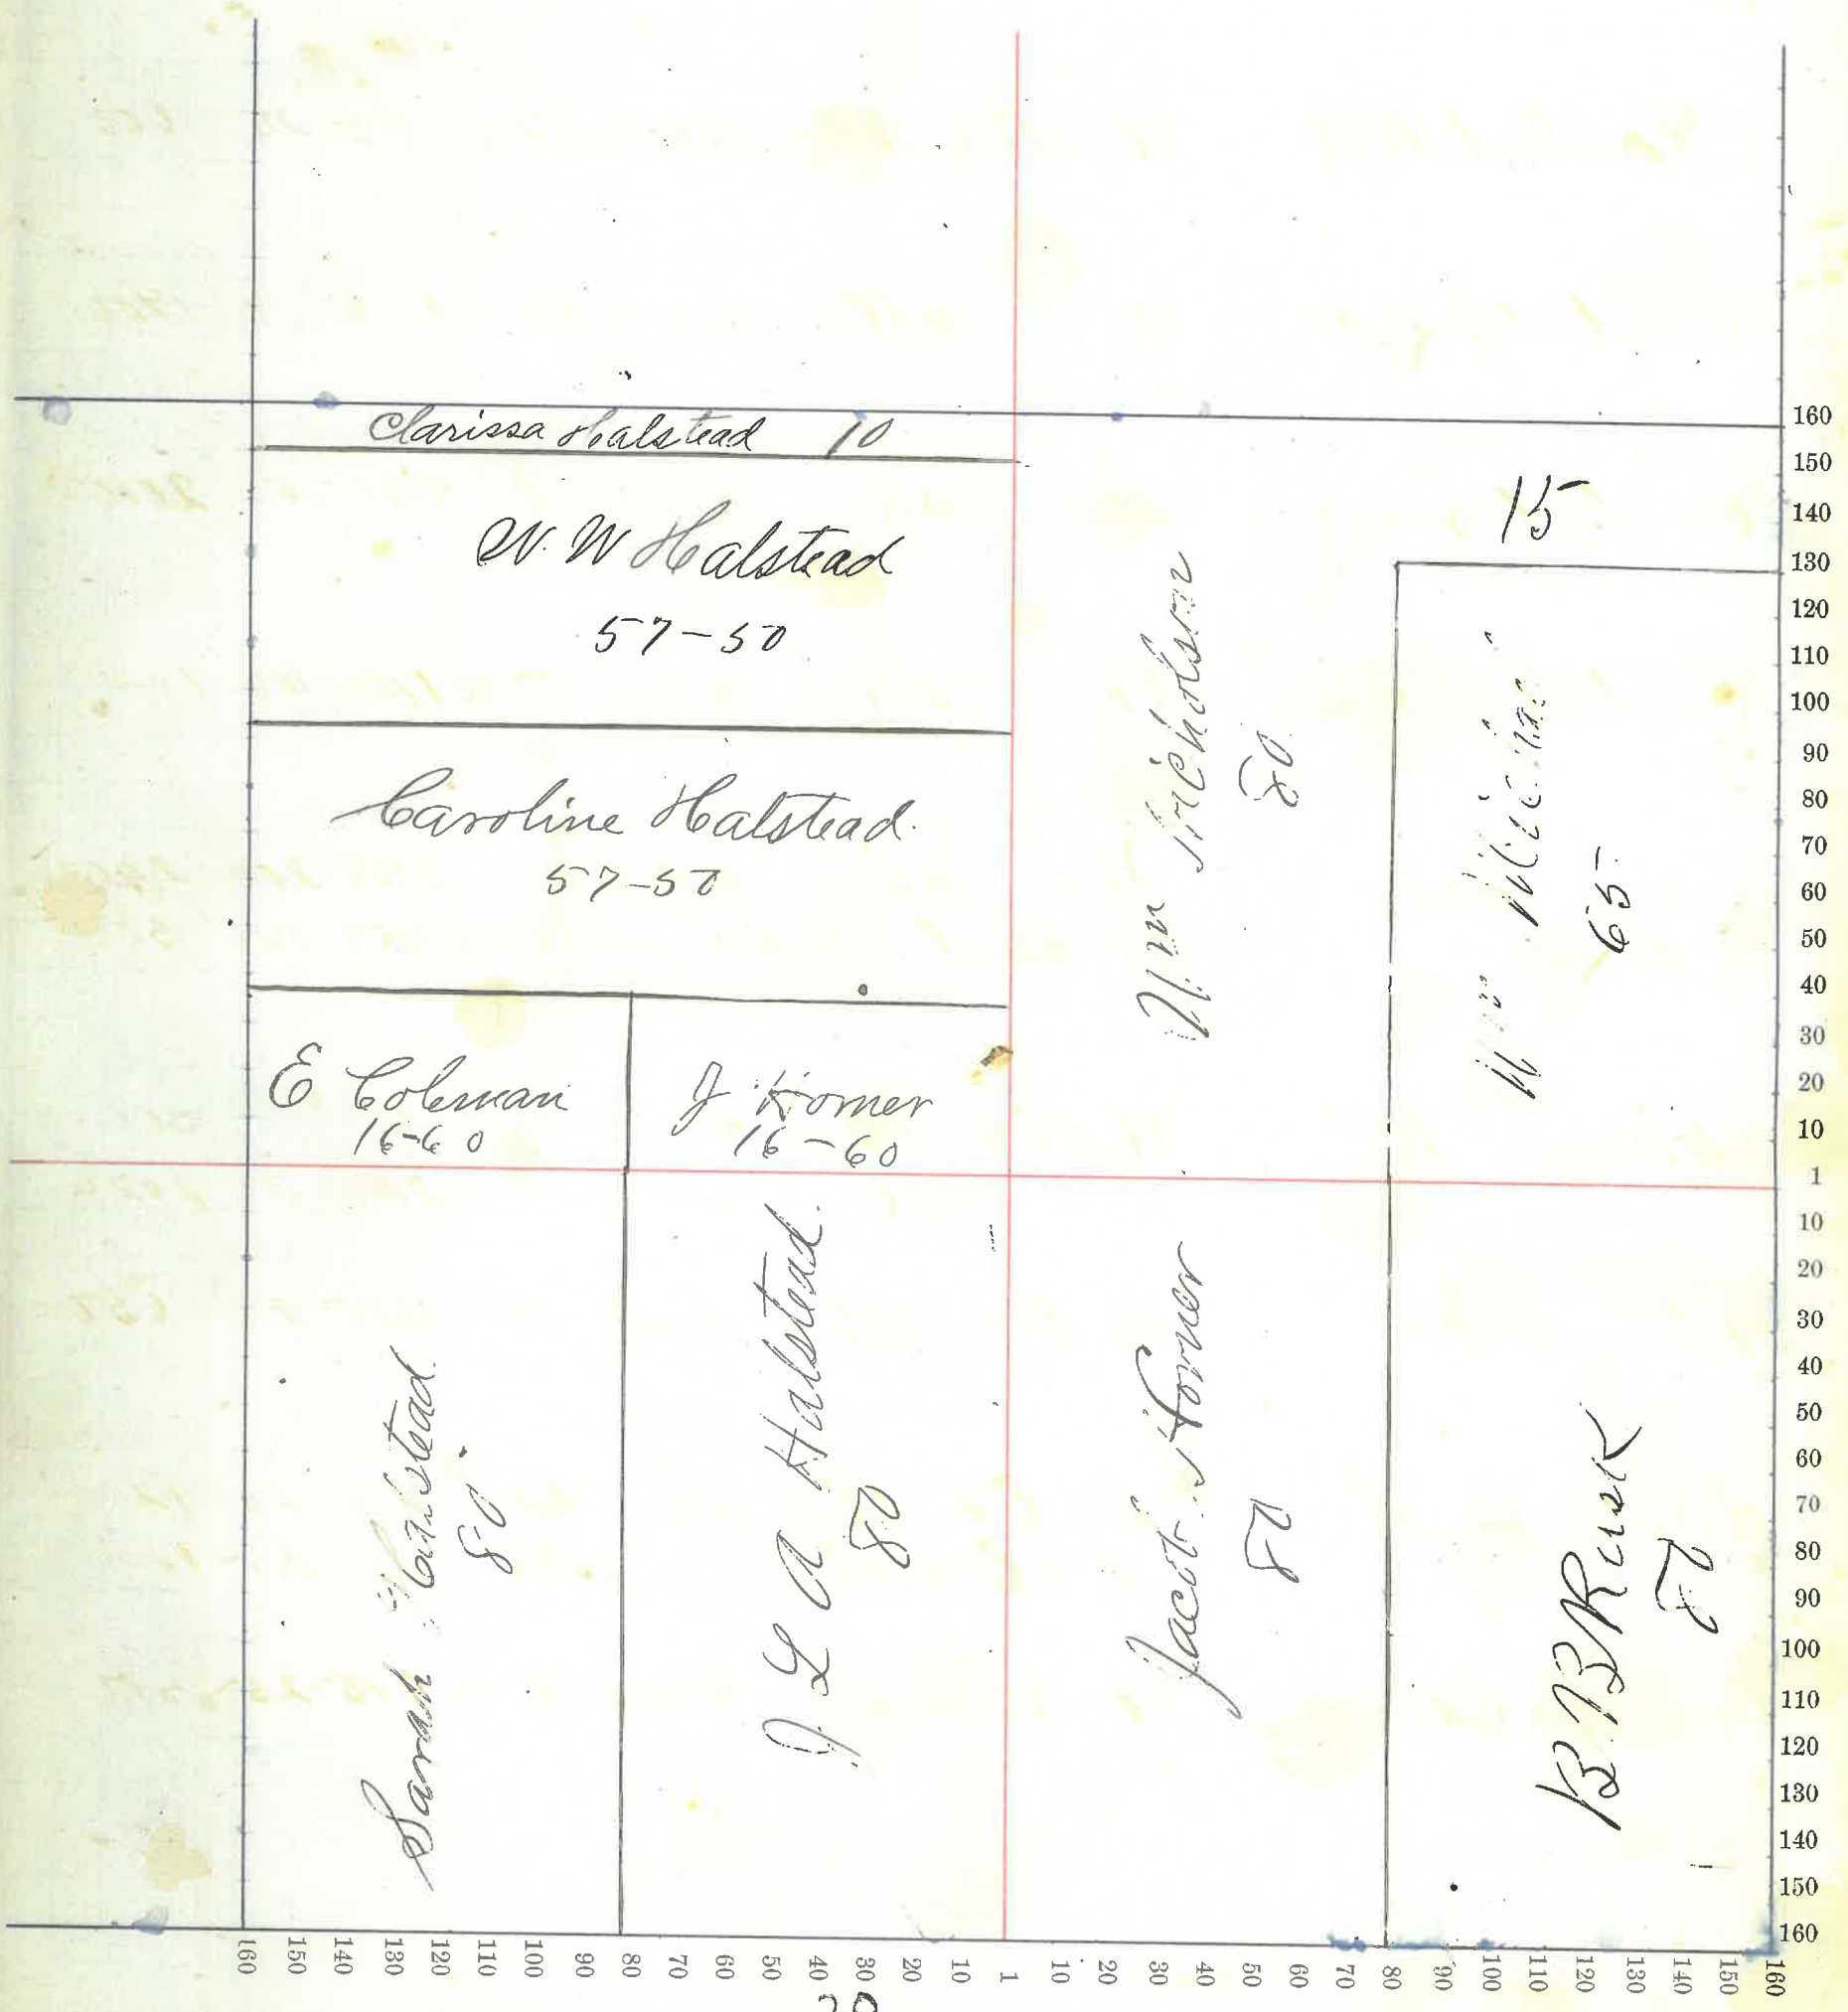 Clarissa Halstead 10
W. W Halstead
57-50
Caroline Halstead.
57-50
E Coleman
16-60
J Horner
16-60
Wm Nicholson
80
15
Wm
65
Sarah Halstead.
80
J L A Halstead.
80
Jacob Horner
80
B. B Rusk
80
160
150
140
130
120
110
100
90
80
70
60
50
40
30
20
10
1
10
20
30
40
50
60
70
80
90
100
110
120
130
140
150
160
160 150 140 130 120 110 100 90 80 70 60 50 40 30 20 10 1 10 20 30 40 50 60 70 80 90 100 110 120 130 140 150 160